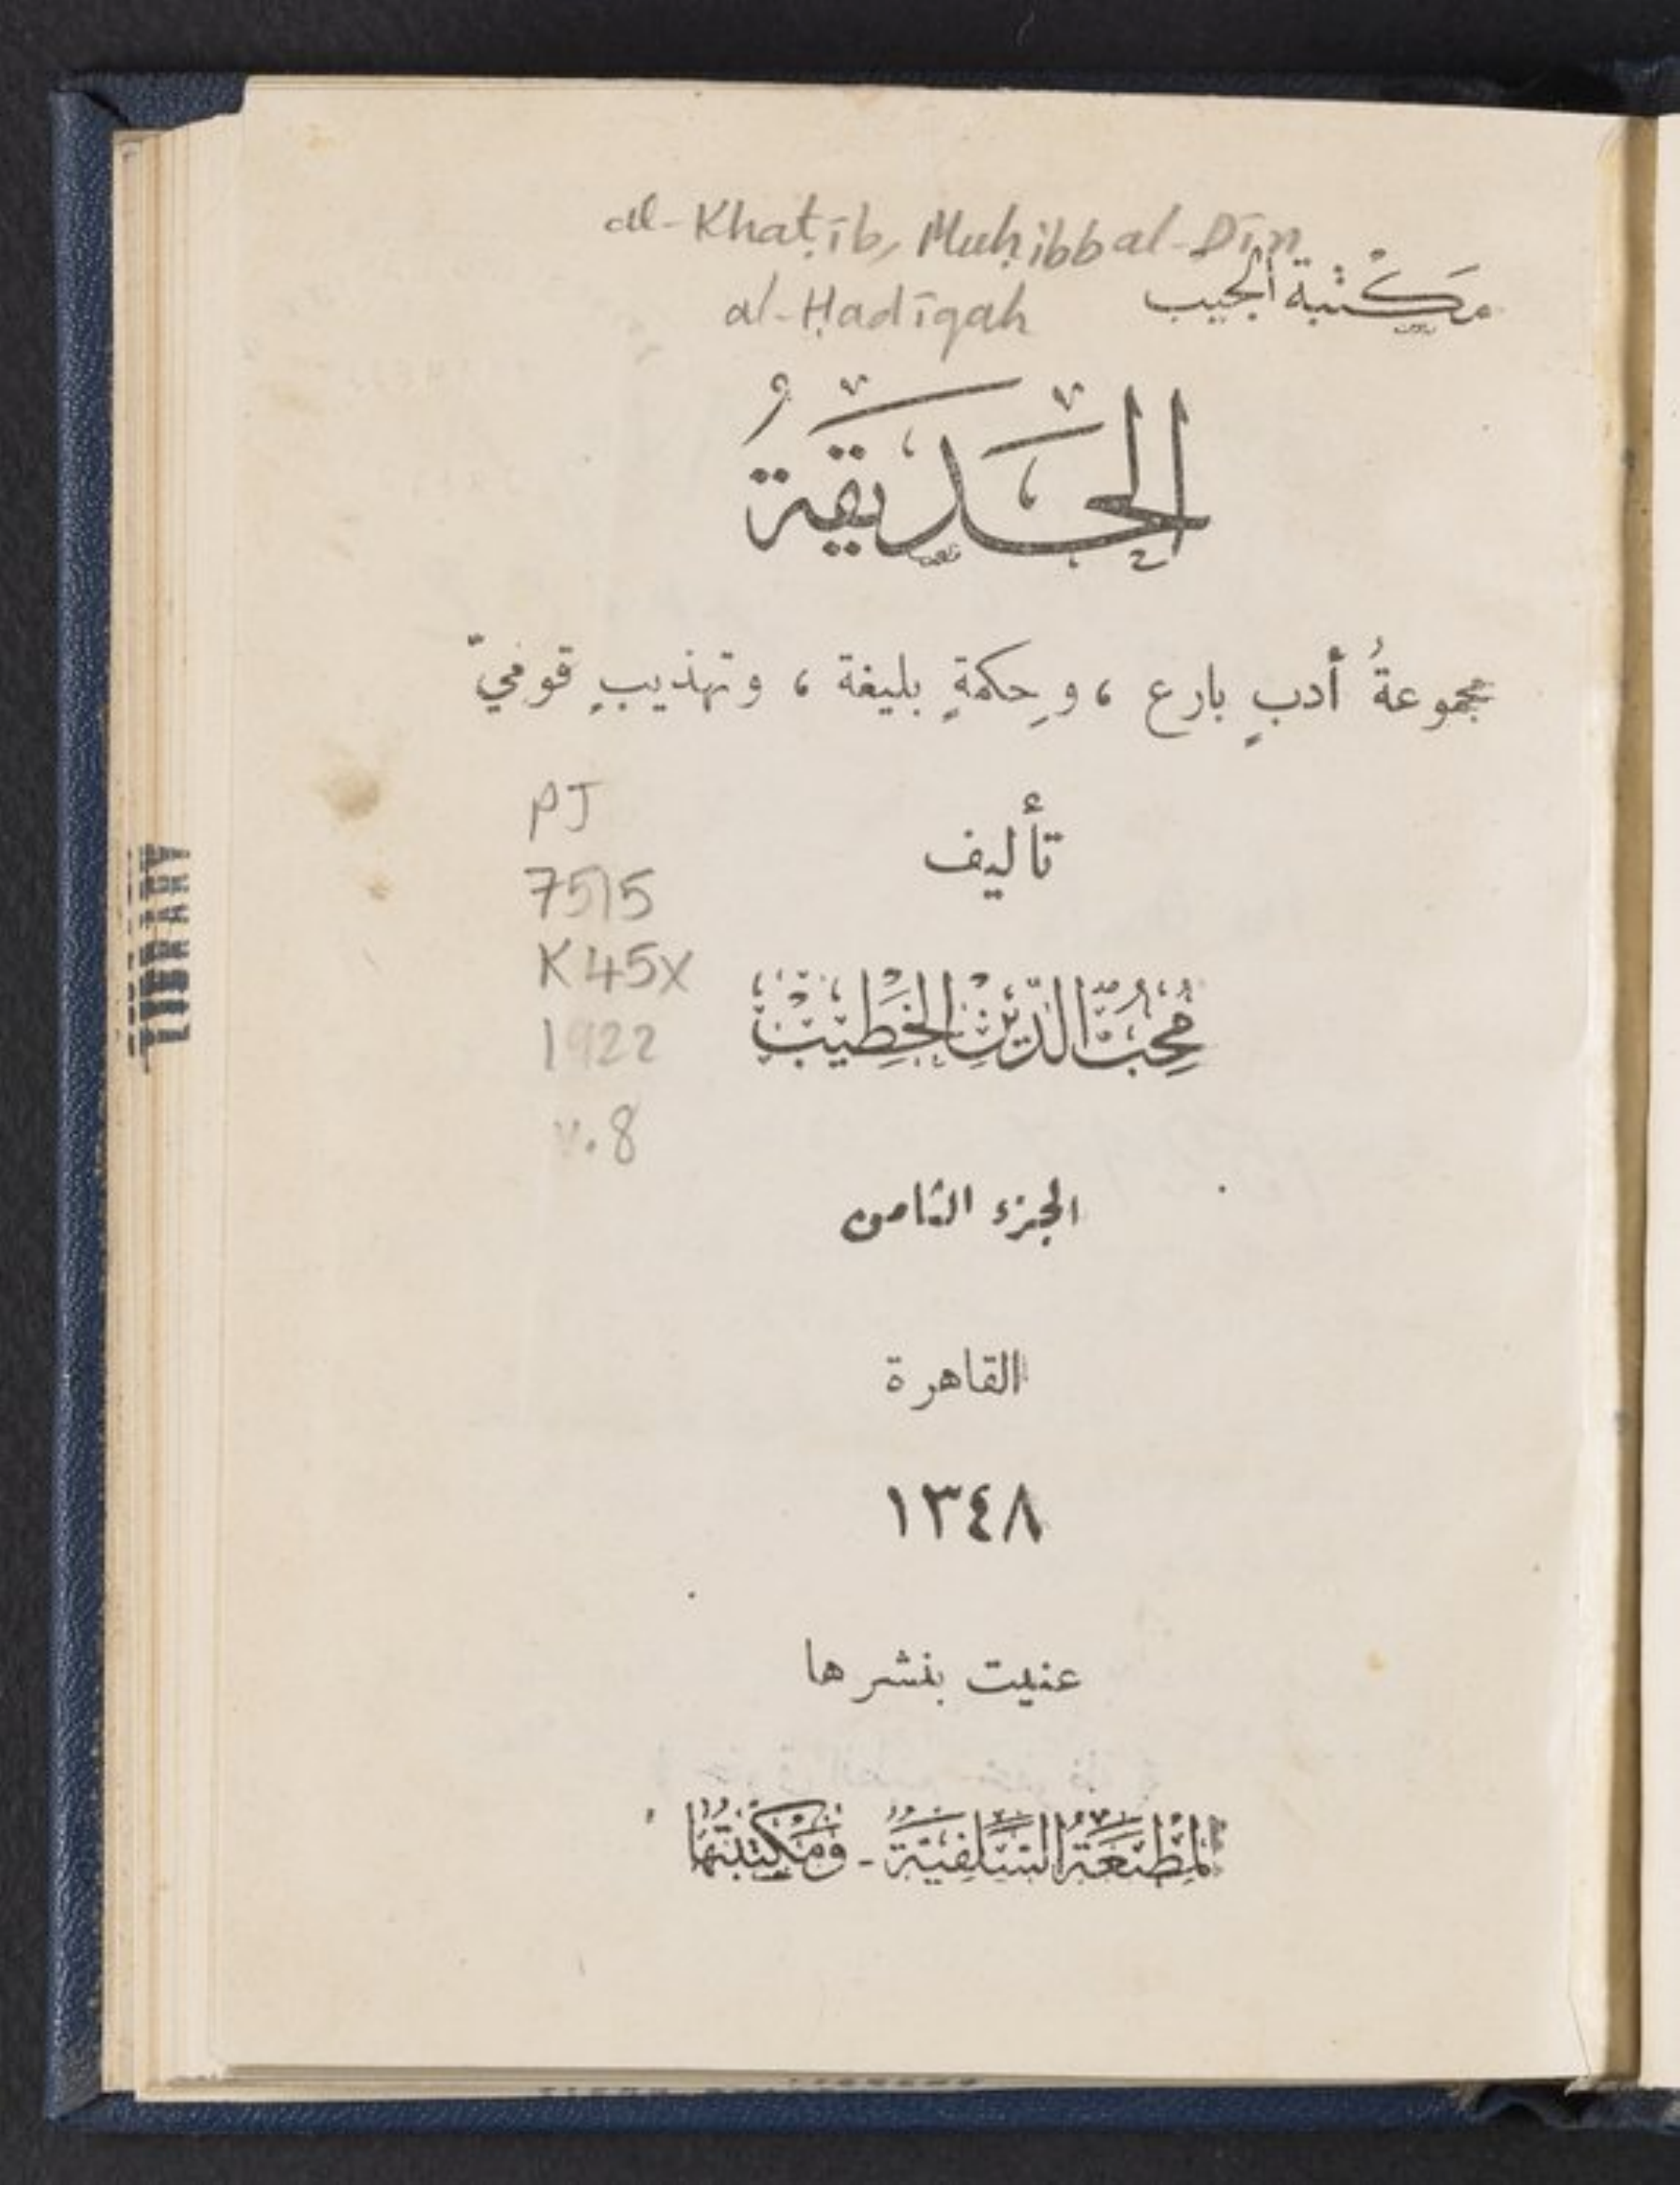 al-Khaṭīb, Muḥibb al-Dīn
al-Ḥadīqah
مَكْتبة الجيب
الحَديقَةُ
مجموعةُ أدبٍ بارع ، وحِكمةٍ بليغة ، وتهذيبٍ قوميّ
تأليف
PJ
7515
K45X
1922
v.8
مُحِبُّ الدِّيْنِ الخَطِيْبْ
الجزء الثامن
القاهرة
١٣٤٨
عنيت بنشرها
المَطْبَعَةُ السَّلَفِيَّةُ - وَمَكْتَبَتُهَا
LIBRARY